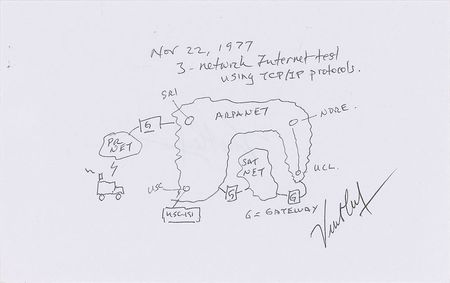 Nov 22, 1977
3-network Internet test
using TCP/IP protocols.
SRI
ARPANET
NDRE
G
PR
NET
SAT
NET
USC
UCL
G
G
USC-ISI
G = GATEWAY
Vint Cerf